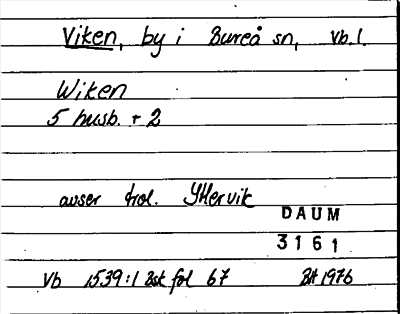 Viken, by i Bureå sn, Vb. l.
Wiken
5 husb. + 2
avser trol. Yttervik
DAUM
3161
Vb 1539:1 Bsk fol 67 BH 1976